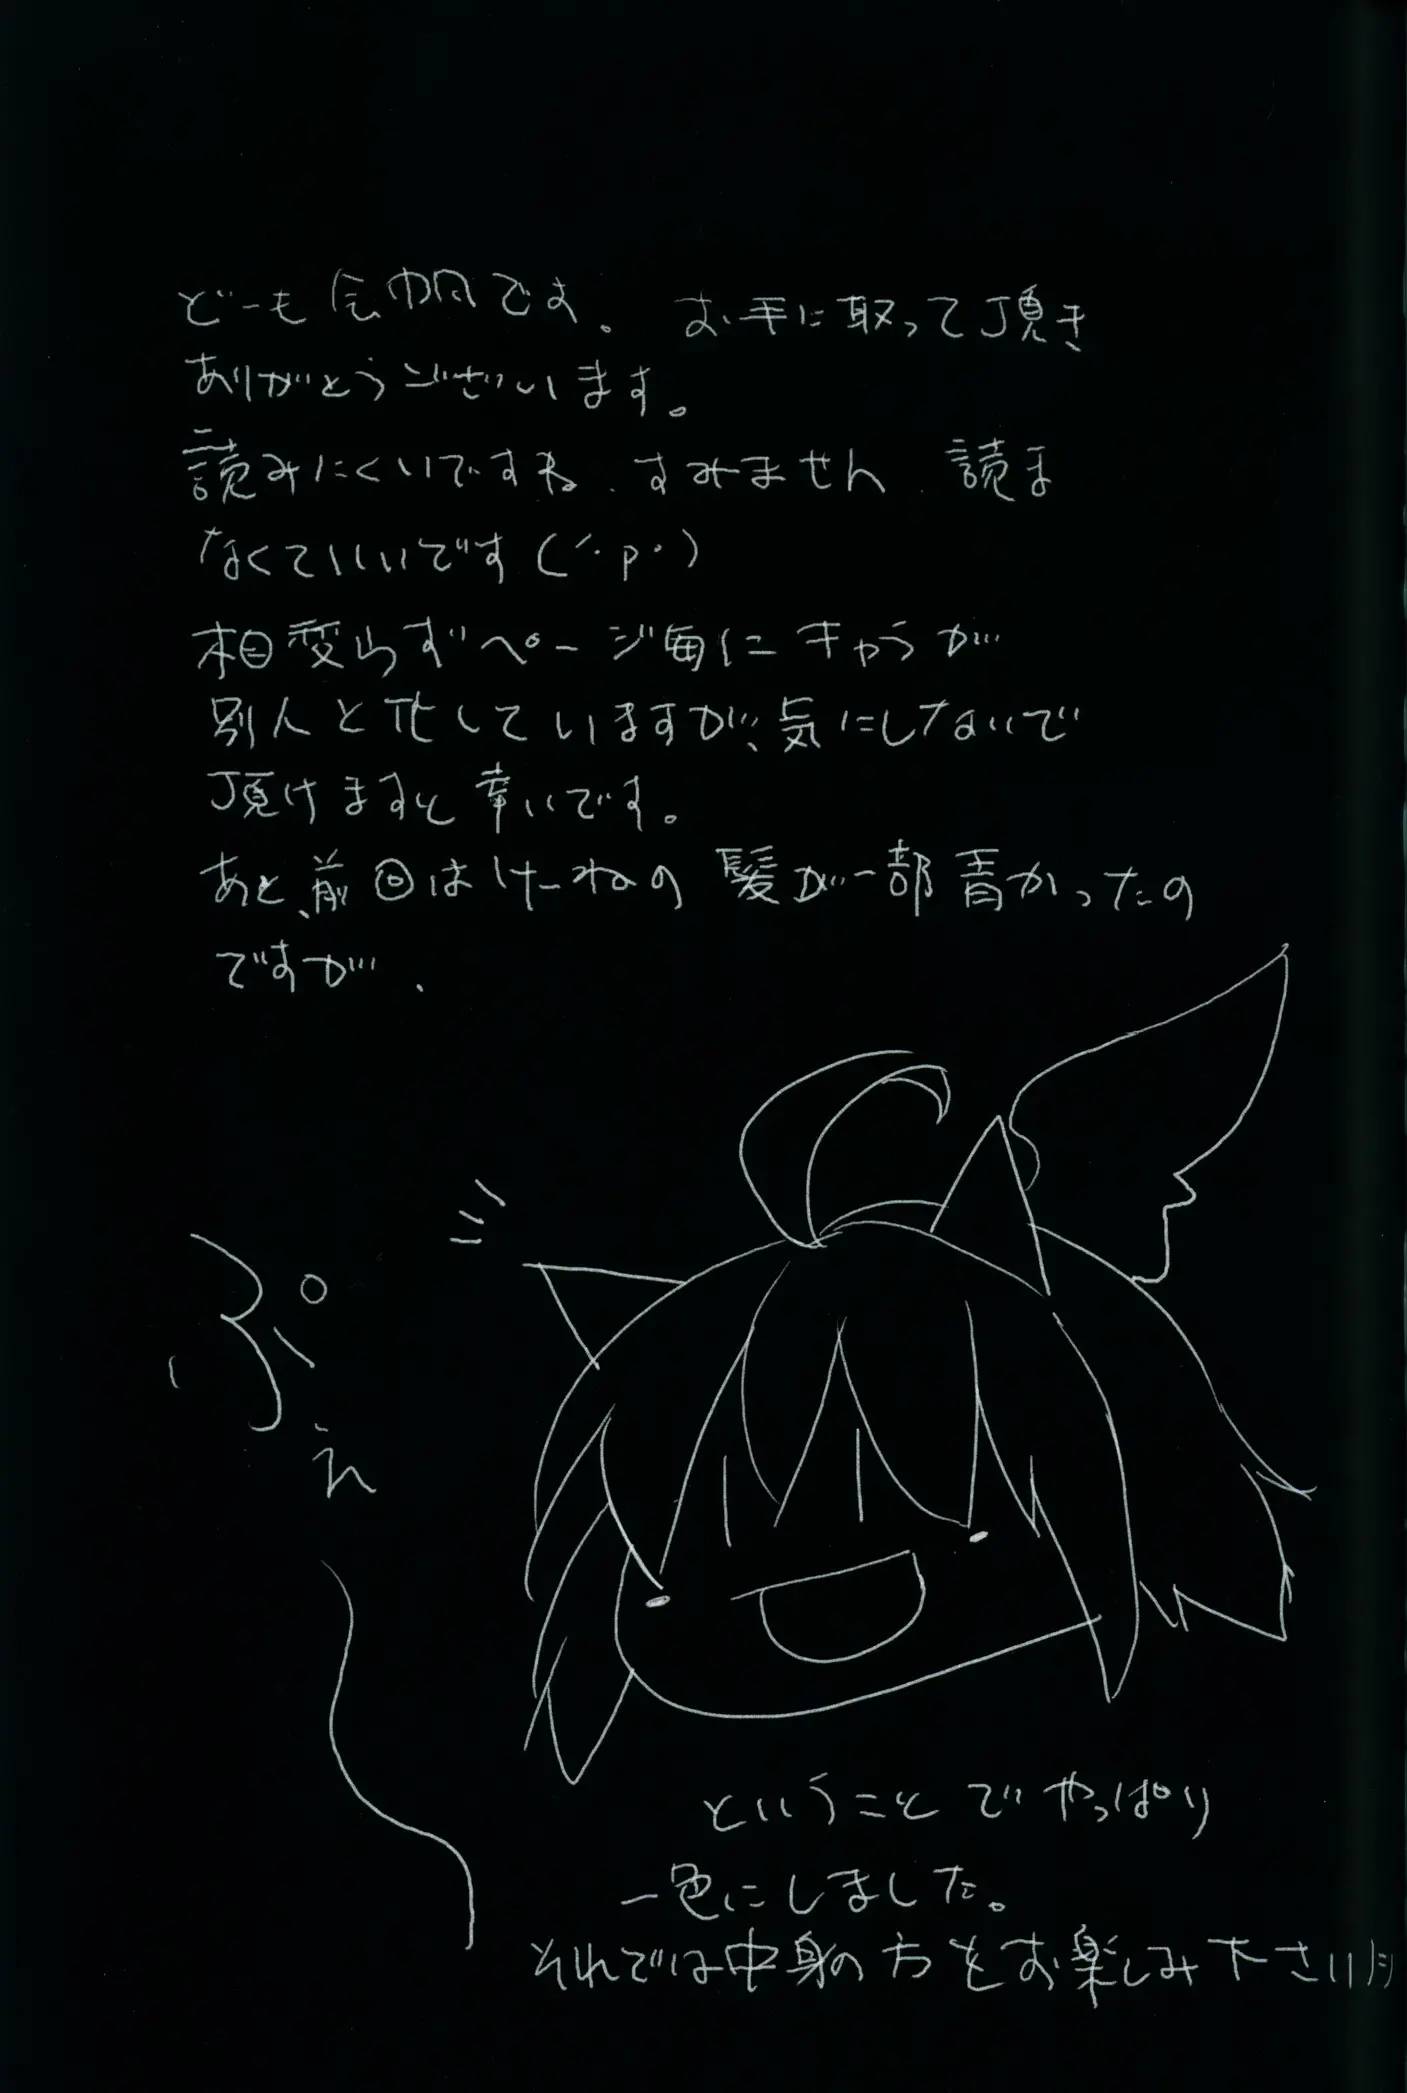 どーも です。 お手に取って頂き
ありがとうございます。
読みにくいですね、すみません、読ま
なくていいです(´･p･)
相変らずページ毎にキャラが
別人と化していますが、気にしないで
頂けますと幸いです。
あと、前回はけーねの髪が一部青かったの
ですが、
ぷぇ
ということでやっぱり
一色にしました。
それでは中身の方をお楽しみ下さい